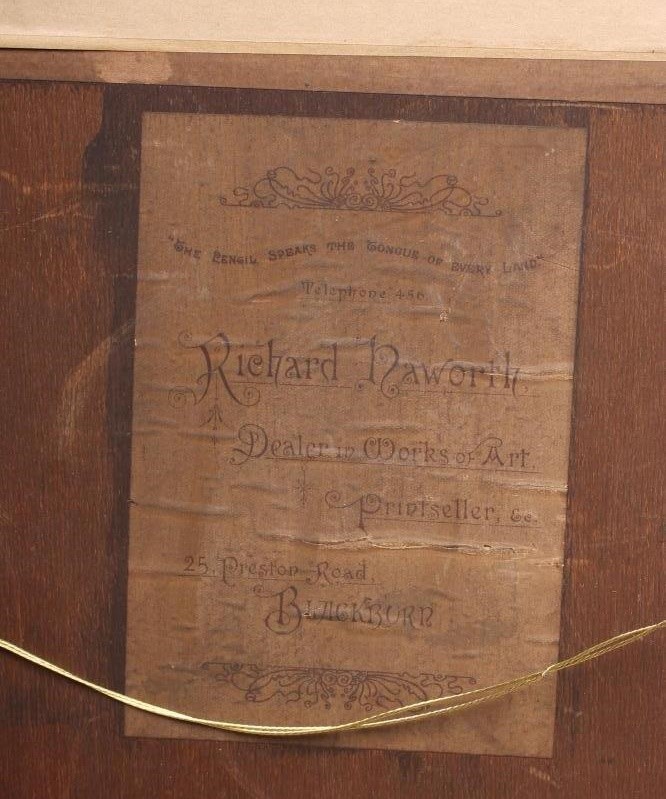 "The Pencil Speaks the Tongue of every Land"
Telephone 456
Richard Haworth,
Dealer in Works of Art,
Printseller, &c.
25, Preston Road,
BLACKBURN